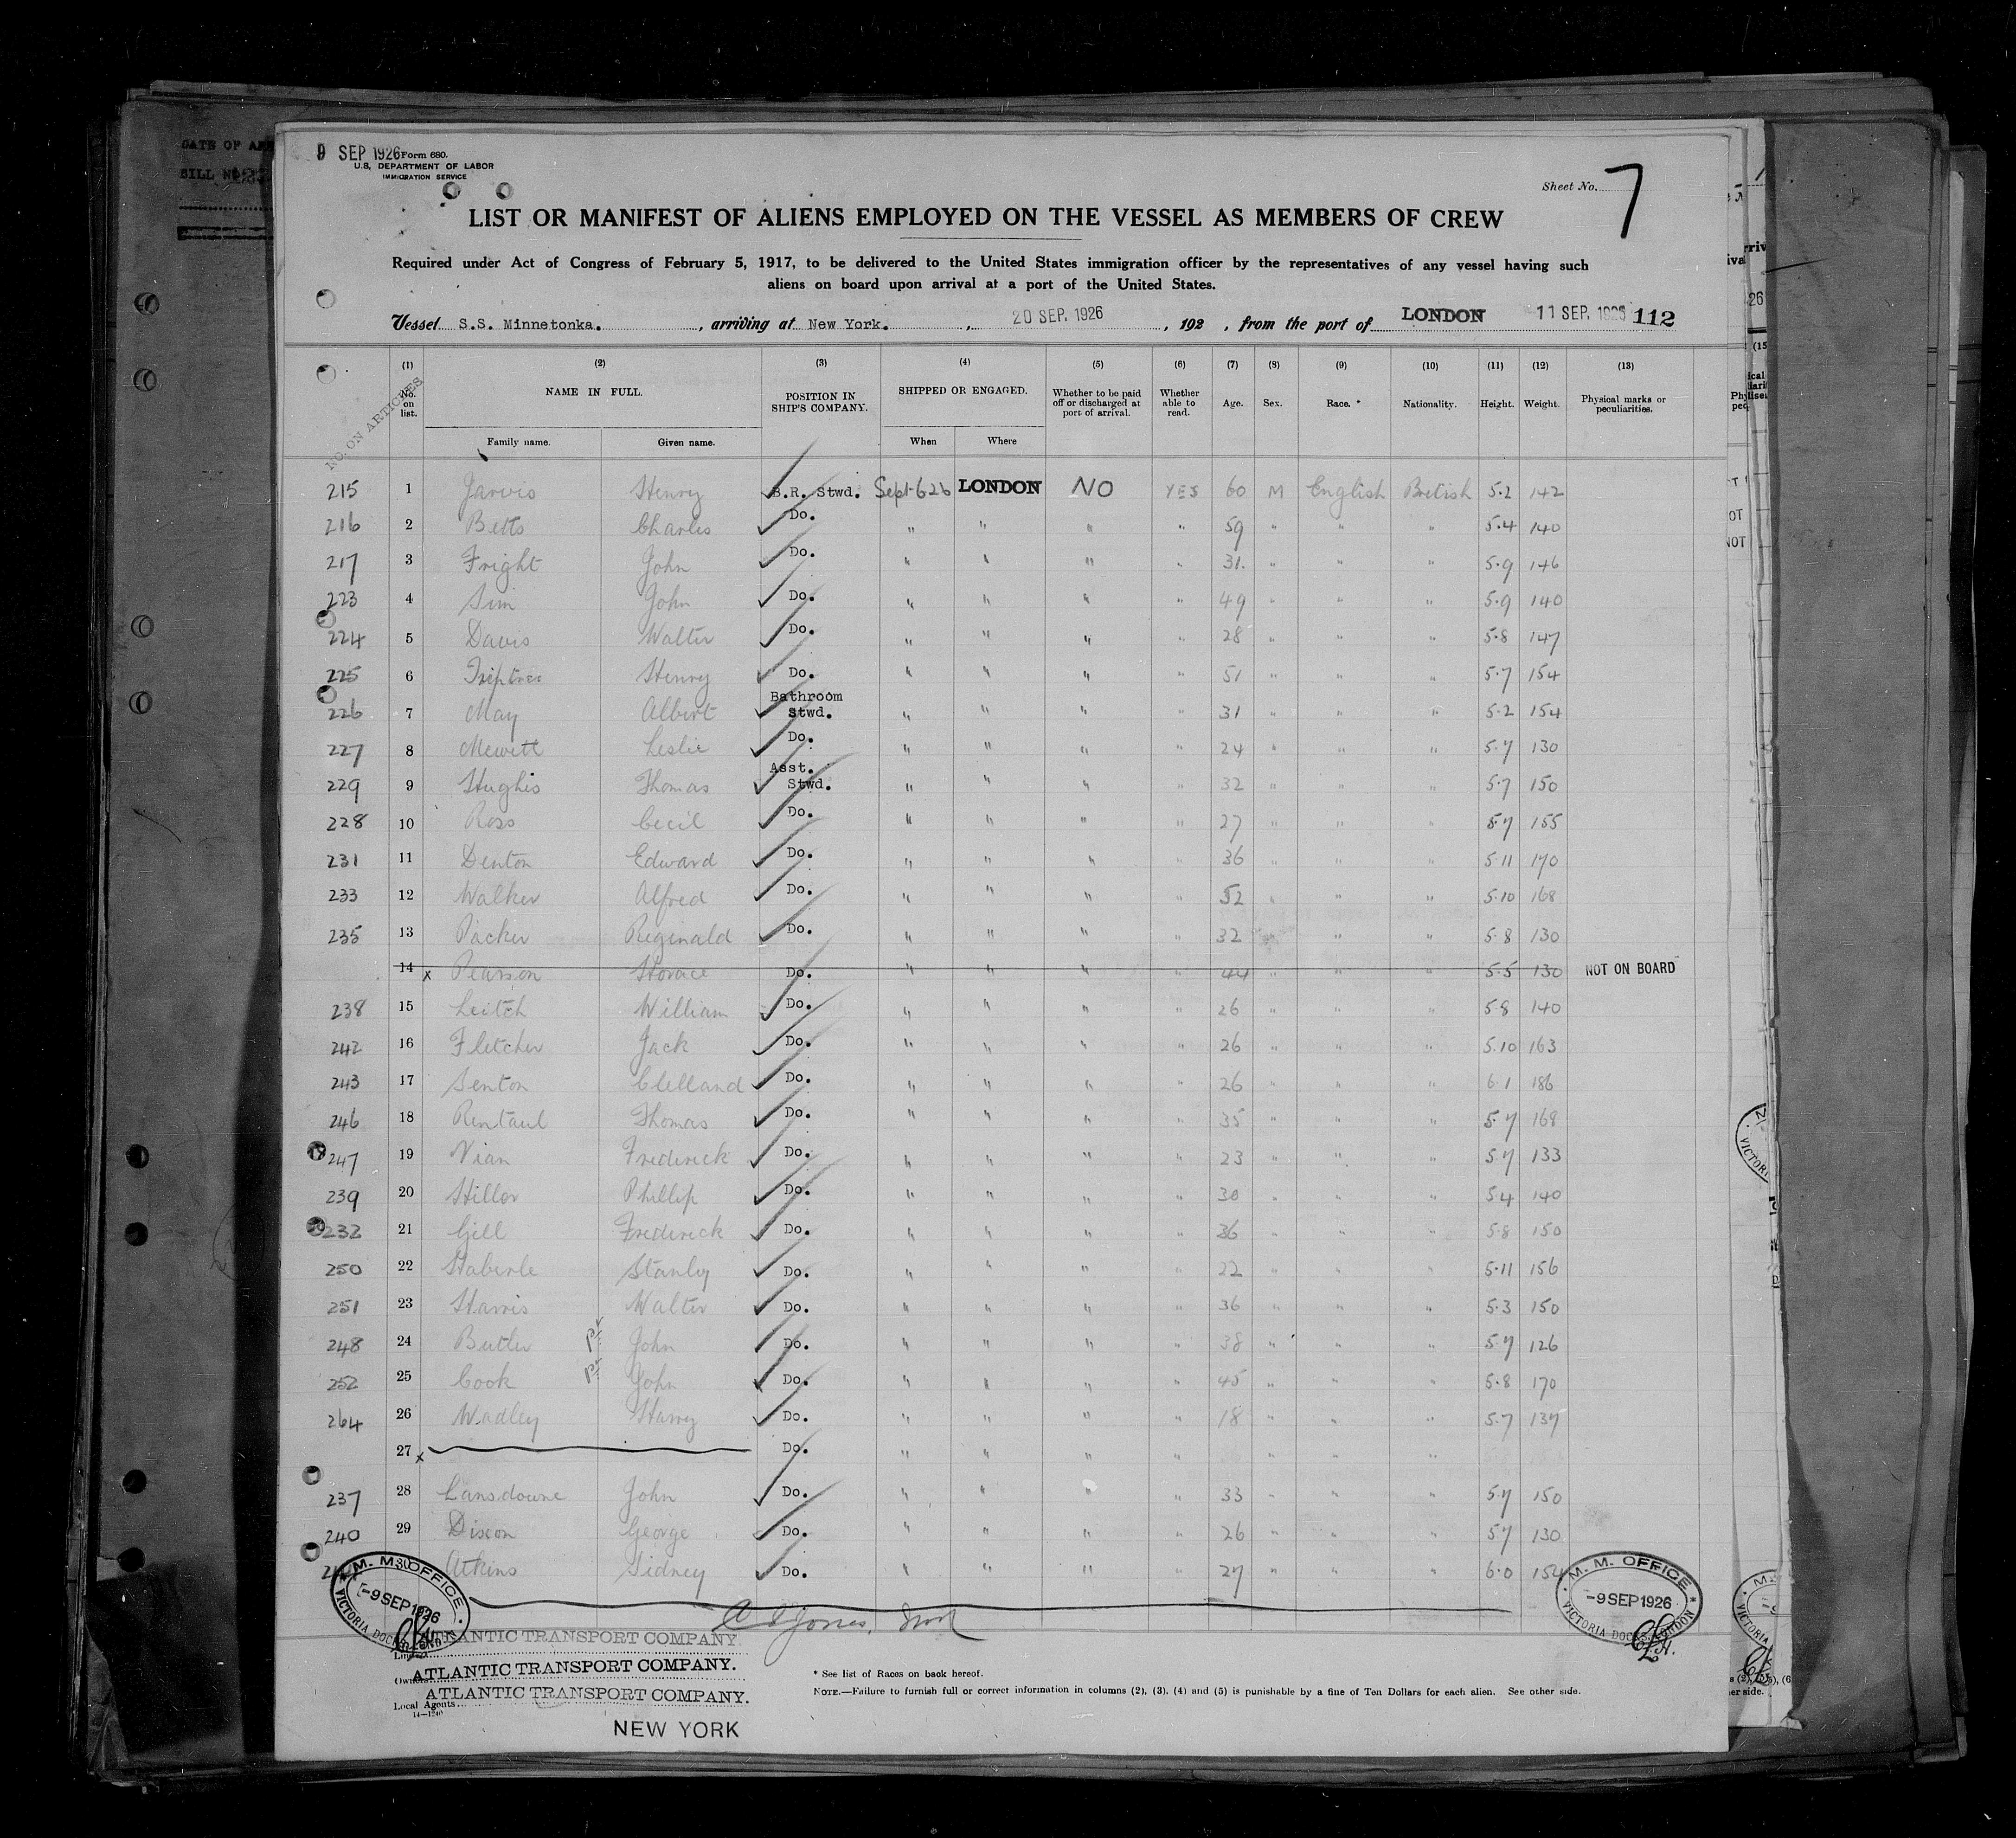 9 SEP 1926 Form 680.
U.S. DEPARTMENT OF LABOR
IMMIGRATION SERVICE
Sheet No. 7
LIST OR MANIFEST OF ALIENS EMPLOYED ON THE VESSEL AS MEMBERS OF CREW
Required under Act of Congress of February 5, 1917, to be delivered to the United States immigration officer by the representatives of any vessel having such
aliens on board upon arrival at a port of the United States.
Vessel S.S. Minnetonka. , arriving at New York. , 20 SEP. 1926 , 192 , from the port of LONDON 11 SEP. 1926 112
NO. ON ARTICLES
(1) (2) (3) (4) (5) (6) (7) (8) (9) (10) (11) (12) (13)
No. on list. NAME IN FULL. POSITION IN SHIP'S COMPANY. SHIPPED OR ENGAGED. Whether to be paid off or discharged at port of arrival. Whether able to read. Age. Sex. Race. * Nationality. Height. Weight. Physical marks or peculiarities.
Family name. Given name. When Where
215 1 Jarvis Henry B.R. Stwd. Sept-6 26 LONDON NO YES 60 M English British 5.2 142
216 2 Betts Charles Do. " " " " 59 " " " 5.4 140
217 3 Fright John Do. " " " " 31. " " " 5.9 146
223 4 Sim John Do. " " " " 49 " " " 5.9 140
224 5 Davis Walter Do. " " " " 28 " " " 5.8 147
225 6 Henry Do. " " " " 51 " " " 5.7 154
226 7 May Albert Bathroom Stwd. " " " " 31 " " " 5.2 154
227 8 Mewitt Leslie Do. " " " " 24 " " " 5.7 130
229 9 Hughes Thomas Asst. Stwd. " " " " 32 " " " 5.7 150
228 10 Ross Cecil Do. " " " " 27 " " " 5.7 155
231 11 Denton Edward Do. " " " " 36 " " " 5.11 170
233 12 Walker Alfred Do. " " " " 52 " " " 5.10 168
235 13 Packer Reginald Do. " " " " 32 " " " 5.8 130
14 x Pearson Horace Do. " " " " 44 " " " 5.5 130 NOT ON BOARD
238 15 Leitch William Do. " " " " 26 " " " 5.8 140
242 16 Fletcher Jack Do. " " " " 26 " " " 5.10 163
243 17 Senton Clelland Do. " " " " 26 " " " 6.1 186
246 18 Rentaul Thomas Do. " " " " 35 " " " 5.7 168
247 19 Vian Frederick Do. " " " " 23 " " " 5.7 133
239 20 Hillor Phillip Do. " " " " 30 " " " 5.4 140
232 21 Gill Frederick Do. " " " " 36 " " " 5.8 150
250 22 Haberle Stanley Do. " " " " 22 " " " 5.11 156
251 23 Harris Walter Do. " " " " 36 " " " 5.3 150
248 24 Butler John Do. " " " " 38 " " " 5.7 126
252 25 Cook John Do. " " " " 45 " " " 5.8 170
264 26 Wadley Harry Do. " " " " 18 " " " 5.7 137
27 x Do. " " " " " " "
237 28 Lansdowne John Do. " " " " 33 " " " 5.7 150
240 29 Dixon George Do. " " " " 26 " " " 5.7 130
30 Atkins Sidney Do. " " " " 27 " " " 6.0 154
M. M. OFFICE
-9 SEP 1926
VICTORIA DOCKS, LONDON
M. M. OFFICE
-9 SEP 1926
VICTORIA DOCKS, LONDON
ATLANTIC TRANSPORT COMPANY.
Owners ATLANTIC TRANSPORT COMPANY.
Local Agents ATLANTIC TRANSPORT COMPANY.
14—1240
NEW YORK
* See list of Races on back hereof.
NOTE.—Failure to furnish full or correct information in columns (2), (3), (4) and (5) is punishable by a fine of Ten Dollars for each alien. See other side.